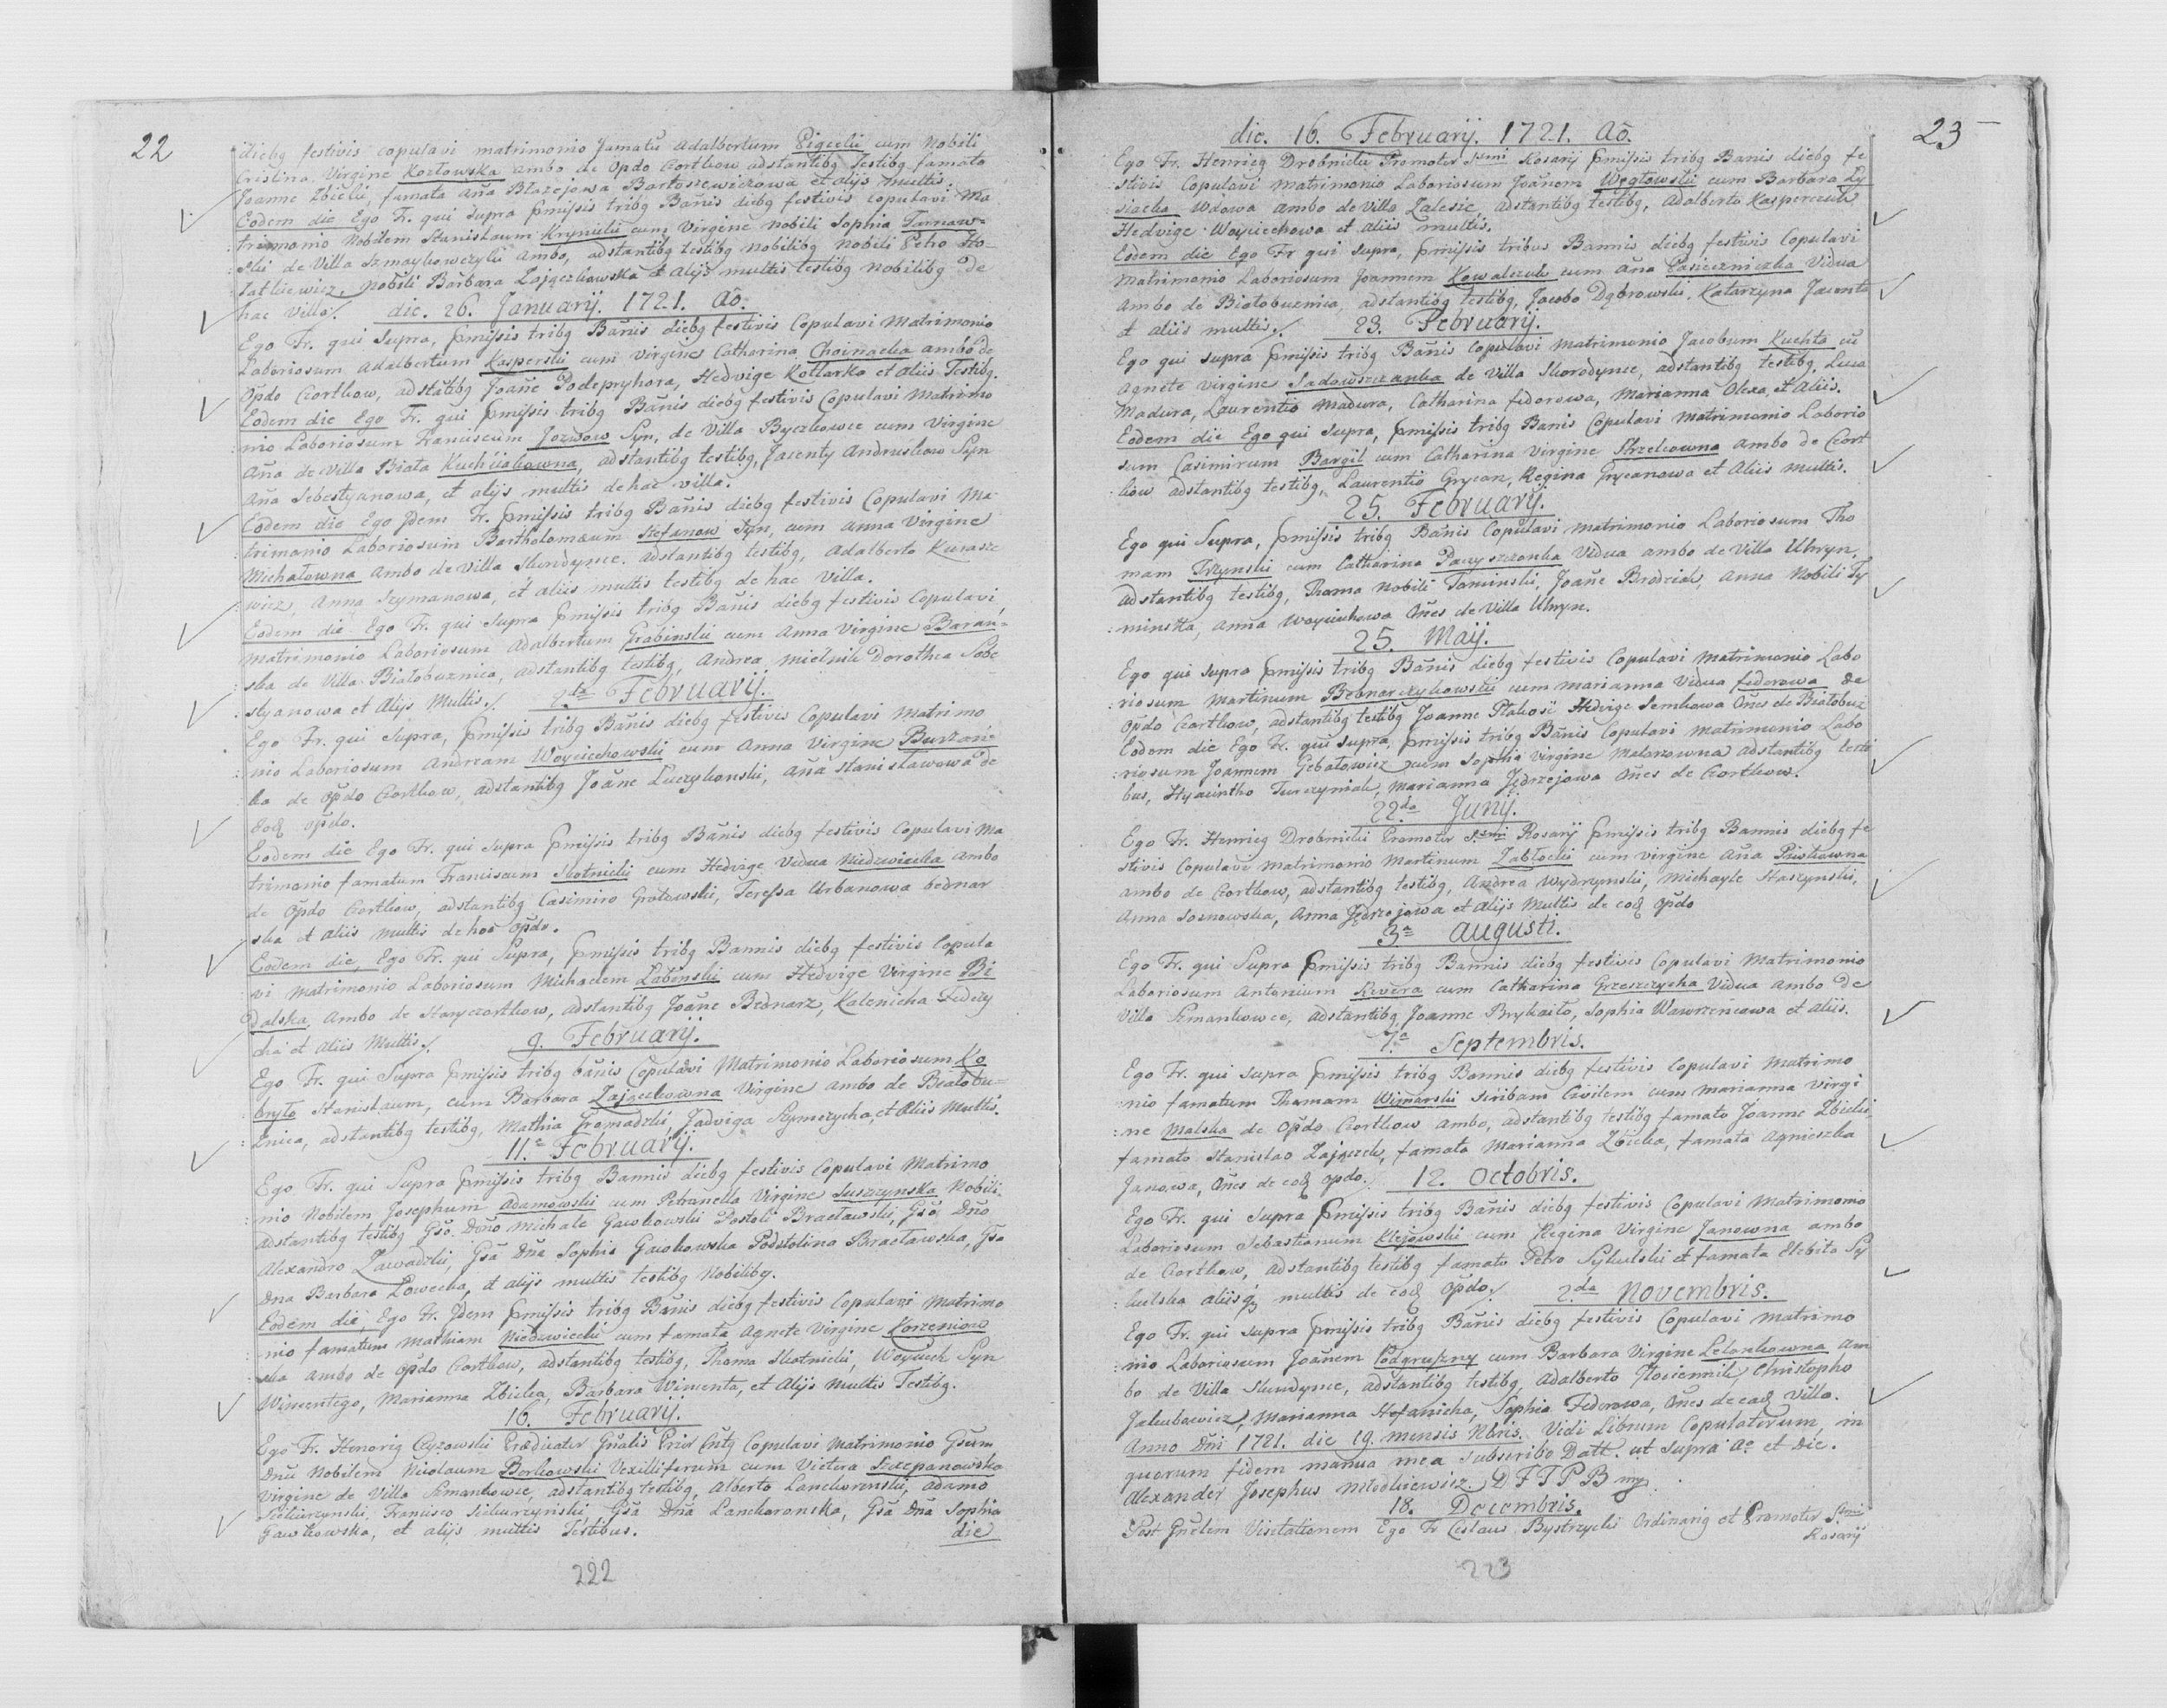 22
diebq festivis copulavi matrimonio famatū Adalbertum Pigeckū cum Nobili
Cristina Virgine Kozłowska ambo de Opdo Czortkow adstantibq Testibq famato
Joanne Zbicki, famata Aña Błazejowa Bartoszewiczowa et alijs multis.
Eodem die Ego Fr. qui supra pmissis tribq Banis diebq festivis copulavi Ma
trimonio Nobilem Stanisłaum Krynicki cum Virgine nobili Sophia Tarnaw=
ski de Villa Szmaykowczyki ambo, adstantibq testibq nobilibq Nobili Petro
nobili Barbara Zajączkowska et Alijs multis testibq nobilibq de
hac Villa. die. 26. Januarij. 1721. Aō.
Ego Fr. qui Supra, pmissis tribq Bānis diebq festivis Copulavi Matrimonio
Laboriosum Adalbertum Kasperski cum Virgines Catharina Choinacka ambo de
Opdo Czortkow, adstātibq Joañe Podepryhora, Hedvige Kotlarka et Aliis Testibq.
Eodem die Ego Fr. qui pmissis tribq Bānis diebq festivis Copulavi Matrimo
nio Laboriosum Franciscum Jozwow Syn, de Villa Byczkowce cum Virgine
Aña de Villa Biała, adstantibq testibq, Jacenty Andruskow Syn
Aña Sebestyanowa, et alijs multis de hac villa.
Eodem die Ego Jdem Fr. pmissis tribq Bānis diebq festivis Copulavi Ma
trimonio Laboriosum Bartholomæum Stefanow Syn, cum Anna Virgine
Michałowna ambo de Villa Skorodynce. adstantibq testibq, Adalberto Kurasze
wicz, Anna Szymanowa, et aliis multis testibq de hac Villa.
Eodem die Ego Fr. qui Supra pmissis tribq Bānis diebq festivis Copulavi
Matrimonio Laboriosum Adalbertum Grabinski cum Anna Virgine Baran=
ska de Villa Białobuznica, adstantibq testibq, Andrea Mielnik Dorothea Sobe
styanowa et Alijs Multis. 2da Februarij.
Ego Fr. qui Supra, pmissis tribq Bānis diebq festivis Copulavi Matrimo
nio Laboriosum Andream Woyciechowski cum Anna Virgine Burzans
ka de Opdo Czortkow, adstantibq Joāne Luczykonski, Aña Stanisławowa de
eoq opdo.
Eodem die Ego Fr. qui supra pmissis tribq Bānis diebq festivis Copulavi Ma
trimonio famatum Franciscum Skotnicki cum Hedvige Vidua Niedzwiecka ambo
de Opdo Czortkow, adstantibq Casimiro Grotowski, Teressa Urbanowa bednar
ska et Aliis multis de hoc Opdo.
Eodem die, Ego Fr. qui Supra, pmissis tribq Bannis diebq festivis Copula
vi Matrimonio Laboriosum Michaelem Łabinski cum Hedvige Virgine Bi
dalska, Ambo de Staryczortkow, adstantibq Joāne Bednarz, Kalenicha Federy
cha et Aliis Multis. 9. Februarij.
Ego Fr. qui Supra pmissis tribq bānis Copulavi Matrimonio Laboriosum Ko
bryło Stanisłaum, cum Barbara Zajączkowna Virgine ambo de Białobu=
znica, adstantibq testibq, Mathia Gromadzki, Jadviga Szymczycha, et Aliis Multis.
11.a Februarij.
Ego Fr. qui Supra pmissis tribq Bannis diebq festivis Copulavi Matrimo
nio Nobilem Josephum Adamowski cum Petranella Virgine Suszzynska Nobili,
adstantibq testibq Gso Dño Michale Gawkowski Postoli Bracławski, Gso Dño
Alexandro Zawadzki, Gsa Dña Sophia Gawkowska Podstolina Bracławska, Gsa
Dna Barbara Łowecka, et alijs multis testibq Nobilibq.
Eodem die, Ego Fr. Jdem pmissis tribq Bānis diebq festivis Copulavi Matrimo
nio famatum Mathiam Niedzwiecki cum famata Agnete Virgine Korzeniow
ska ambo de opdo Czortkow, adstantibq testibq, Thoma Skotnicki, Woyciech Syn
Wincentego, Marianna Zbicka, Barbara Wincenta, et Alijs multis Testibq.
16. Februarij.
Ego Fr. Henoriq Czyzowski Prædicator Gñalis Prior Cñtq Copulavi Matrimonio Gsum
Dnū Nobilem Nicolaum Borkowski Vexilliferum cum Victora Szczepanowska
Virgine de Villa Szmankowce, adstantibq testibq, Alberto Lanckorenski, Adamo
Siekurzynski, Francisco Siekurzynski, Gsa Dña Lanckoronska, Gsa Dña Sophia
Gawkowska, et alijs multis Testibus. die
222
23
die. 16. Februarij. 1721. Aō.
Ego Fr. Henriq Drobnicki Promotor Ssmi Rosarij pmissis tribq Banis diebq fe
stivis Copulavi Matrimonio Laboriosum Joānem Węgłowski cum Barbara Ły
siacka Wdowa ambo de Villa Zalesie, adstantibq testibq, Adalberto Kasperczuk
Hedvige Woyciechowa et aliis multis.
Eodem die Ego Fr qui supra, pmissis tribus Bannis diebq festivis Copulavi
Matrimonio Laboriosum Joannem Kowalczuk cum Aña Pasieczniczka Vidua
Ambo de Białobuznica, adstantibq testibq, Jacobo Dąbrowski, Katarzyna Jacenta
et aliis multis. 23. Februarij.
Ego qui supra pmissis tribq Bānis copulavi Matrimonio Jacobum Kuchta cū
Agnete Virgine Sadowszczanka de Villa Skorodynce, adstantibq testibq, Luca
Madura, Laurentio Madura, Catharina Fedorowa, Marianna Olexa, et Aliis.
Eodem die Ego qui supra, pmissis tribq Banis Copulavi Matrimonio Laborio
sum Casimirum Bargil cum Catharina Virgine Strzelcowna ambo de Czort
kow adstantibq testibq, Laurentio Grycan, Regina Grycanowa et Aliis multis.
25. Februarij.
Ego qui Supra, pmissis tribq Bānis Copulavi Matrimonio Laboriosum Tho
mam Trzynski cum Catharina Paczyszczonka Vidua ambo de Villa Uhryn,
adstantibq testibq, Thoma Nobili Taminski, Joāne Brodziak, Anna Nobili Ty
minska, Anna Woyciechowa Oñes de Villa Uhryn.
25. Maij.
Ego qui Supra pmissis tribq Bānis diebq festivis Copulavi Matrimonio Labo
riosum Martinum Bednarzykowski cum Marianna Vidua Federowa de
Opdo Czortkow, adstantibq testibq Joanne Ptakosz Hedvige Semkowa Oñes de Białobuz
Eodem die Ego Fr. qui supra, pmissis tribq Bānis Copulavi Matrimonio Labo
riosum Joannem Gebałowicz cum Sophia Virgine Malarzowna adstantibq testi
bus, Hyacintho Turczyniak, Marianna Jędrzejowa Oñes de Czortkow.
22da Junij.
Ego Fr. Henriq Drobnicki Promotor Ssmi Rosarij pmissis tribq Bannis diebq fe
stivis Copulavi Matrimonio Martinum Zabłocki cum virgine Aña Piwkowna
ambo de Czortkow, adstantibq testibq, Andrea Wydrzynski, Michayle Staszynski,
Anna Sosnowska, Anna Jędrzejowa et Alijs Multis de eoq opdo
3a Augusti.
Ego Fr. qui Supra pmissis tribq Bannis diebq festivis Copulavi Matrimonio
Laboriosum Antonium Rivera cum Catharina Grzeszczycha Vidua Ambo de
Villa Szmankowce, adstantibq Joanne Brykaito, Sophia Wawrzencawa et Aliis.
7a Septembris.
Ego Fr. qui supra pmissis tribq Bannis diebq festivis Copulavi Matrimo
nio famatum Thomam Wiznarski Scribam Civilem cum Marianna Virgi
ne Malska de Opdo Czortkow Ambo, adstantibq testibq famato Joanne Zbicki,
famato Stanislao Zajączek, famata Marianna Zbicka, famata Agnieszka
Janowa, Oñes de eoq opdo. 12. Octobris.
Ego Fr. qui Supra pmissis tribq Bānis diebq festivis Copulavi Matrimonio
Laboriosum Sebastianum Klejowski cum Regina Virgine Janowna ambo
de Czortkow, adstantibq testibq famato Petro Sykulski et famata Elebita Sy
kulska aliisq multis de eoq Opdo. 2da Novembris.
Ego Fr. qui supra pmissis tribq Bānis diebq festivis Copulavi Matrimo
nio Laboriosum Joānem Podgruszny cum Barbara Virgine Lelonkowna Am
bo de Villa Skorodynce, adstantibq testibq, Adalberto Słociennik, Christopho
Jakubowicz, Marianna Stefanicha, Sophia Federowa, Oñes de eaq Villa.
Anno Dñi 1721. die 19. mensis Nbris. Vidi Librum Copulatorum, in
quorum fidem manua mea subscribo Datt. ut supra Ao et die.
Alexander Josephus Młodkiewicz D F T P B mp
18. Decembris.
Post Gñalem Visitationem Ego Fr Ceslaus Bystrzycki Ordinariq et Promotor Ssmi
Rosarij
223